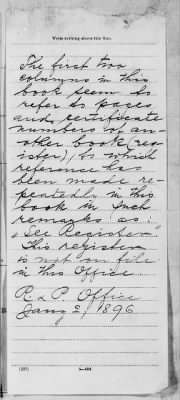 Write nothing above this line.
The first two
columns in this
book seem to
refer to pages
and certificate
numbers of an-
other book (reg-
ister), to which
reference has
been made re-
peatedly in this
book in such
remarks as:
"See Register"
This register
is not on file
in this Office
R. & P. Office
Jany 2, 1896
(257)
3—494